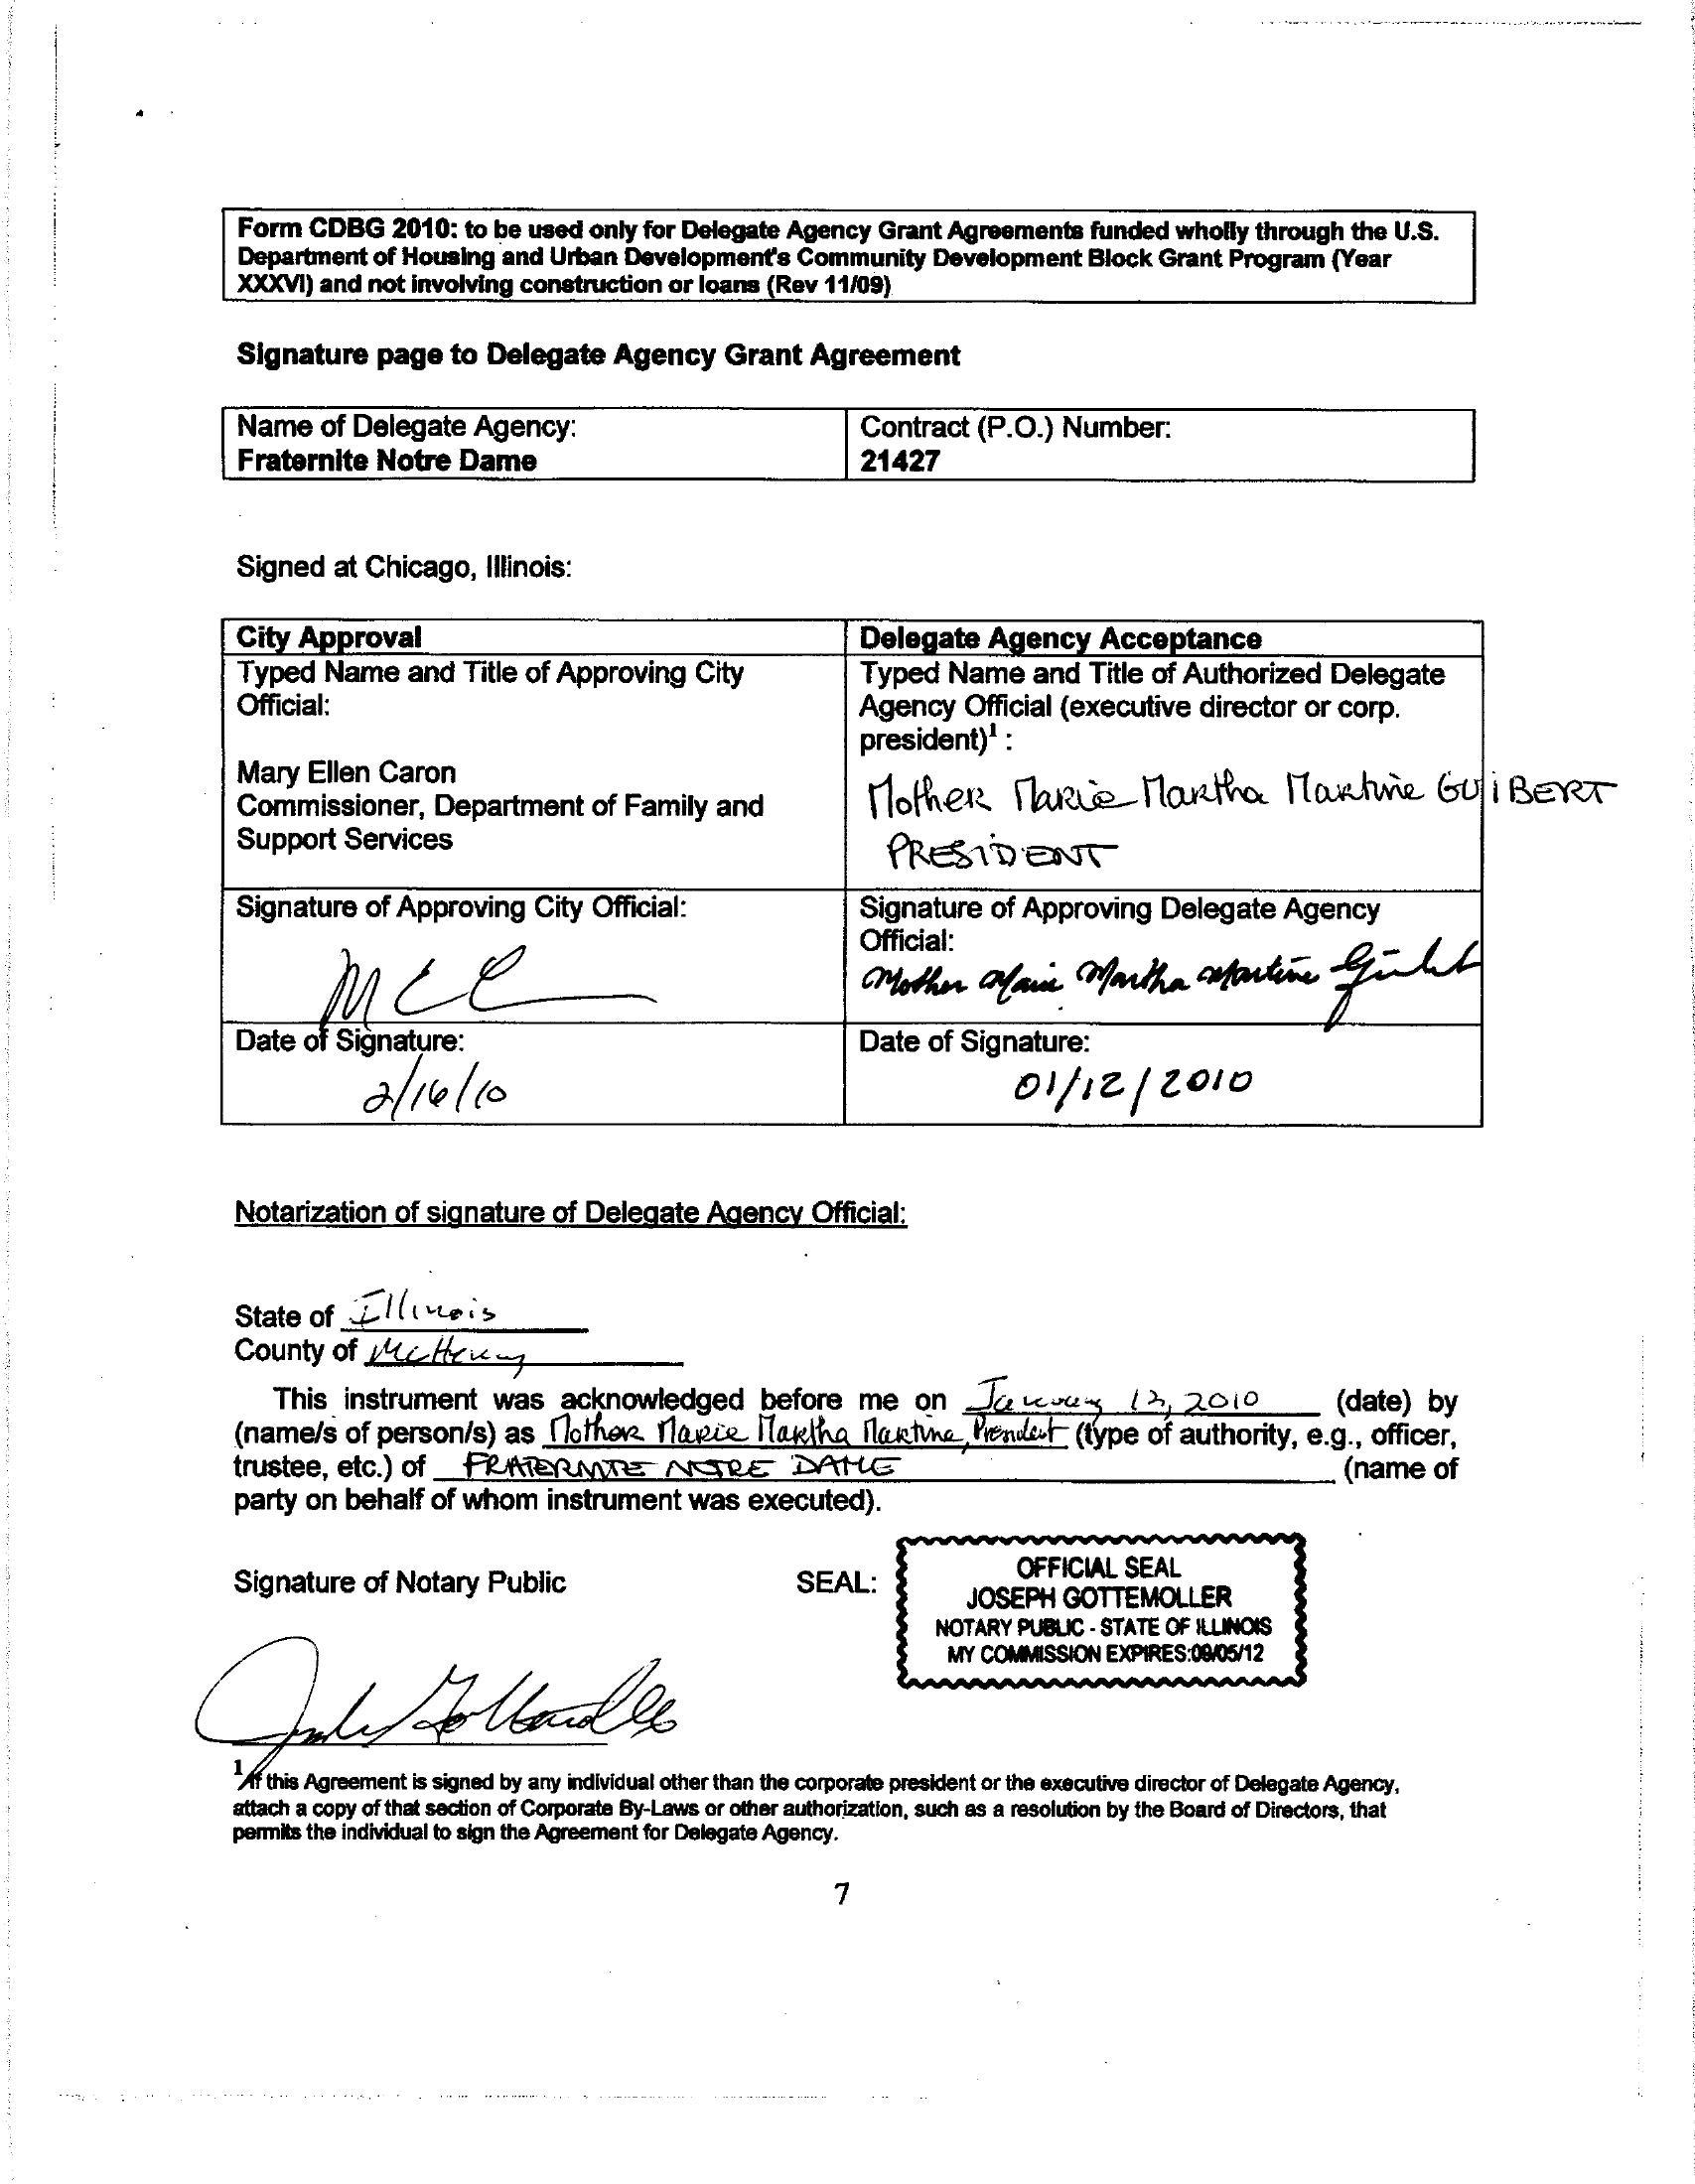 Form CDBG 2010: to be used only for Delegate Agency Grant Agreements funded wholly through the U.S.
Department of Housing and Urban Development's Community Development Block Grant Program (Year
XXXVI) and not involving construction or loans (Rev 11/09)
Signature page to Delegate Agency Grant Agreement
Name of Delegate Agency:
Fraternite Notre Dame
Contract (P.O.) Number:
21427
Signed at Chicago, Illinois:
City Approval
Typed Name and Title of Approving City
Official:
Mary Ellen Caron
Commissioner, Department of Family and
Support Services
Delegate Agency Acceptance
Typed Name and Title of Authorized Delegate
Agency Official (executive director or corp.
president)¹ :
Mother Marie Martha Martine GUiBERT
PRESIDENT
Signature of Approving City Official:
MEC
Date of Signature:
2/16/10
Signature of Approving Delegate Agency
Official:
Mother Marie Martha Martine Guibert
Date of Signature:
01/12/2010
Notarization of signature of Delegate Agency Official:
State of Illinois
County of McHenry
This instrument was acknowledged before me on January 12, 2010 (date) by
(name/s of person/s) as Mother Marie Martha Martine, President (type of authority, e.g., officer,
trustee, etc.) of FRATERNITE NOTRE DAME (name of
party on behalf of whom instrument was executed).
Signature of Notary Public
SEAL:
OFFICIAL SEAL
JOSEPH GOTTEMOLLER
NOTARY PUBLIC - STATE OF ILLINOIS
MY COMMISSION EXPIRES:09/05/12
Joseph Gottemoller
1 If this Agreement is signed by any individual other than the corporate president or the executive director of Delegate Agency,
attach a copy of that section of Corporate By-Laws or other authorization, such as a resolution by the Board of Directors, that
permits the individual to sign the Agreement for Delegate Agency.
7